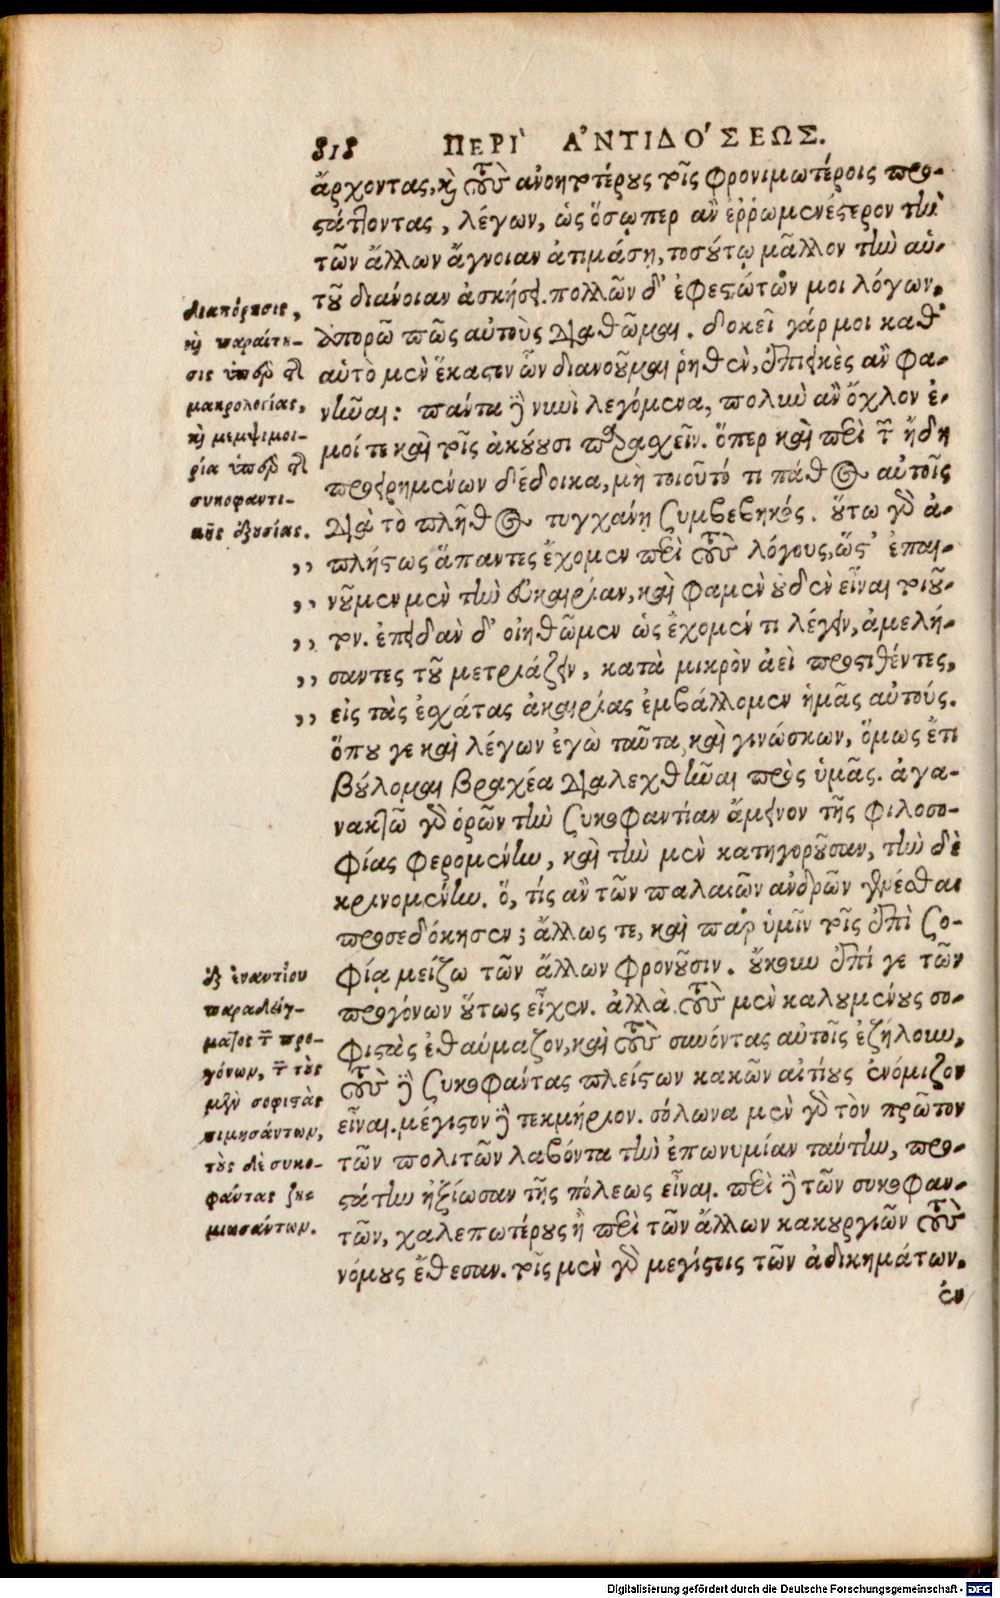 818 ΠΕΡΙ ἈΝΤΙΔΟΣΕΩΣ.
ἄρχοντας, καὶ τοὺς ἀνοητοτέρους τοῖς φρονιμωτέροις προσ-
τάττοντας, λέγων, ὡς ὅσῳπερ ἂν ἐῤῥωμενέστερον τὴν
τῶν ἄλλων ἄγνοιαν ἀτιμάσῃ, τοσούτῳ μᾶλλον τὴν αὑ-
τοῦ διάνοιαν ἀσκήσει. πολλῶν δ' ἐφεστώτων μοι λόγων,
ἀπορῶ πῶς αὐτοὺς διαθῶμαι. δοκεῖ γάρ μοι καθ'
αὑτὸ μὲν ἕκαστον ὧν διανοοῦμαι ῥηθὲν, ἐπιεικὲς ἂν φα-
νῆναι: πάντα δὲ νυνὶ λεγόμενα, πολὺν ἂν ὄχλον ἐ-
μοί τε καὶ τοῖς ἀκούουσι παρασχεῖν. ὅπερ καὶ περὶ τῶν ἤδη
προειρημένων δέδοικα, μὴ τοιοῦτό τι πάθος αὐτοῖς
διὰ τὸ πλῆθος τυγχάνῃ συμβεβηκός. οὕτω γὰρ ἀ-
πλήστως ἅπαντες ἔχομεν περὶ τοὺς λόγους, ὥστ' ἐπαι-
νοῦμεν μὲν τὴν εὐκαιρίαν, καὶ φαμὲν οὐδὲν εἶναι τοιοῦ-
τον. ἐπειδὰν δ' οἰηθῶμεν ὡς ἔχομέν τι λέγειν, ἀμελή-
σαντες τοῦ μετριάζειν, κατὰ μικρὸν ἀεὶ προστιθέντες,
εἰς τὰς ἐσχάτας ἀκαιρίας ἐμβάλλομεν ἡμᾶς αὐτούς.
ὅπου γε καὶ λέγων ἐγὼ ταῦτα καὶ γινώσκων, ὅμως ἔτι
βούλομαι βραχέα διαλεχθῆναι πρὸς ὑμᾶς. ἀγα-
νακτῶ γὰρ ὁρῶν τὴν συκοφαντίαν ἄμεινον τῆς φιλοσο-
φίας φερομένην, καὶ τὴν μὲν κατηγοροῦσαν, τὴν δὲ
κρινομένην. ὅ, τίς ἂν τῶν παλαιῶν ἀνδρῶν γενέσθαι
προσεδόκησεν; ἄλλως τε, καὶ παρ' ὑμῖν τοῖς ἐπὶ σο-
φίᾳ μείζω τῶν ἄλλων φρονοῦσιν. οὔκουν ἐπί γε τῶν
προγόνων οὕτως εἶχεν. ἀλλὰ τοὺς μὲν καλουμένους σο-
φιστὰς ἐθαύμαζον, καὶ τοὺς συνόντας αὐτοῖς ἐζήλουν,
τοὺς δὲ συκοφάντας πλείστων κακῶν αἰτίους ἐνόμιζον
εἶναι. μέγιστον δὲ τεκμήριον. σόλωνα μὲν γὰρ τὸν πρῶτον
τῶν πολιτῶν λαβόντα τὴν ἐπωνυμίαν ταύτην, προ-
στάτην ἠξίωσαν τῆς πόλεως εἶναι. περὶ δὲ τῶν συκοφαν-
τῶν, χαλεπωτέρους ἢ περὶ τῶν ἄλλων κακουργιῶν τοὺς
νόμους ἔθεσαν. τοῖς μὲν γὰρ μεγίστοις τῶν ἀδικημάτων,
ἐν
διαπόρησις,
καὶ παραίτη-
σις ὑπὲρ τῆς
μακρολογίας,
καὶ μεμψιμοι-
ρία ὑπὲρ τῆς
συκοφαντι-
κῆς ἐξουσίας.
ἐξ ἐναντίου
παραδείγ-
ματος τῶν προ-
γόνων, τῶν τοὺς
μὲν σοφιστὰς
τιμησάντων,
τοὺς δὲ συκο-
φάντας ζη-
μιωσάντων.
Digitalisierung gefördert durch die Deutsche Forschungsgemeinschaft - DFG